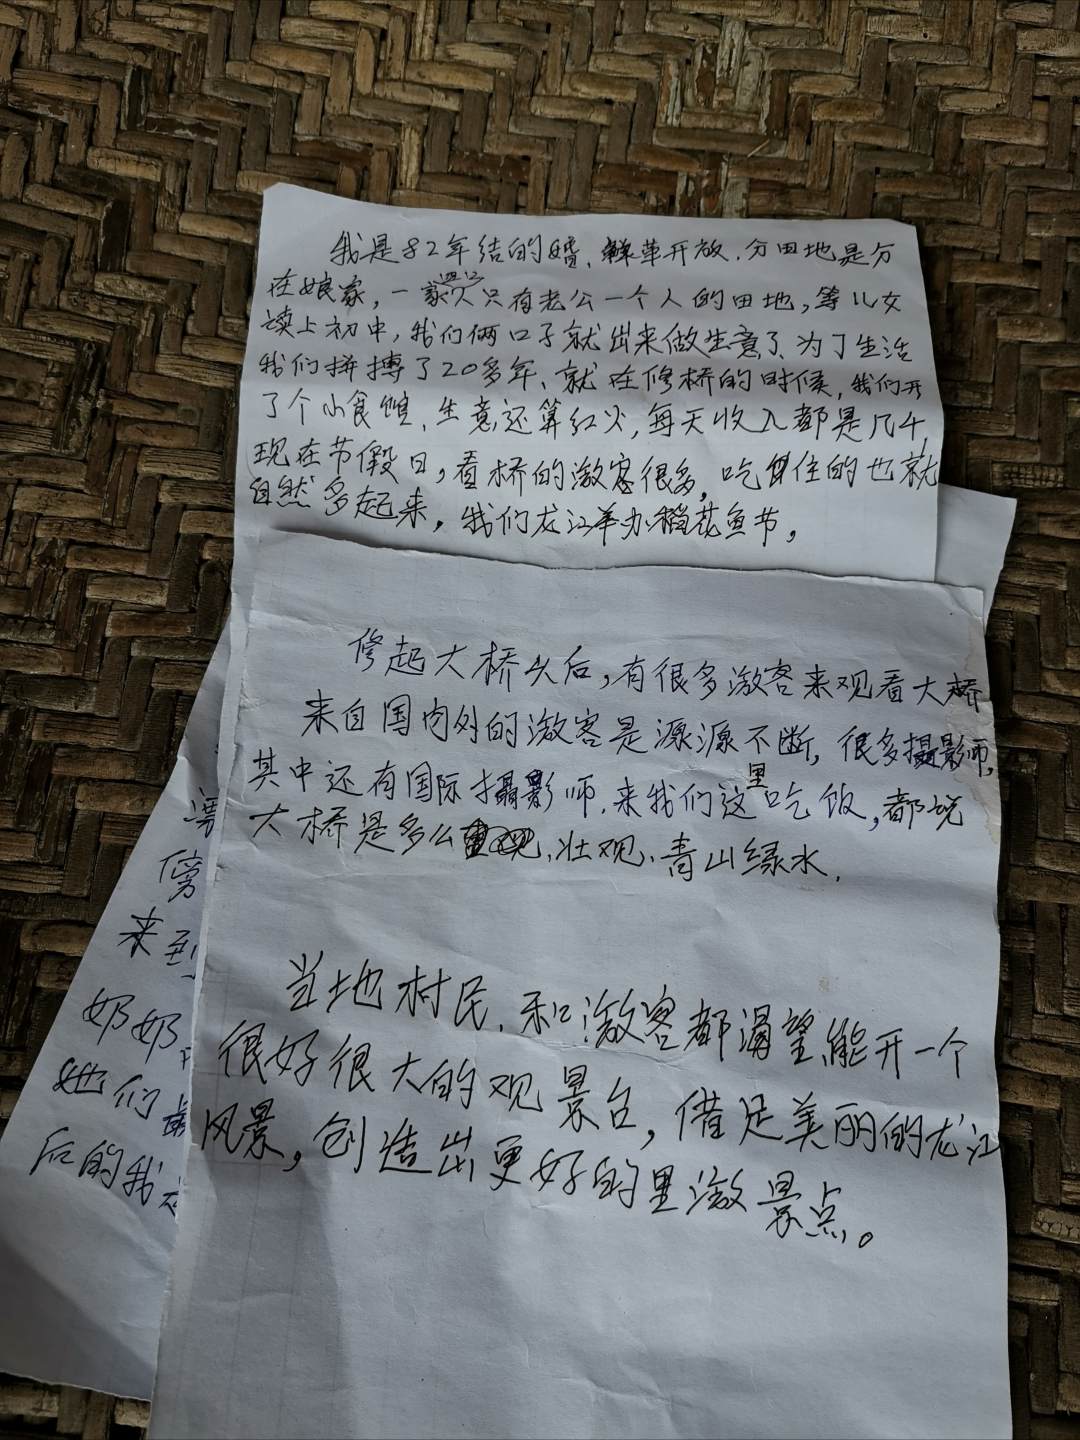 我是82年结的婚、革开放.分田地是分
在娘家，一家四口人只有老公一个人的田地，等儿女
读上初中，我们俩口子就出来做生意了、为了生活
我们拼搏了20多年、就在修桥的时候，我们开
了个小食馆、生意还算红火，每天收入都是几千，
现在节假日，看桥的激客很多，吃住的也就
自然多起来，我们龙江举办稻花鱼节，
修起大桥头后，有很多激客来观看大桥
来自国内外的激客是源源不断，很多攝影师，
其中还有国际攝影师.来我们这里吃饭，都说
大桥是多么、壮观、青山绿水.
当地村民.和激客都渴望能开一个
很好很大的观景台，借足美丽的龙江
风景，创造出更好的里激景点。
傍
来到
奶奶
她们
后的我